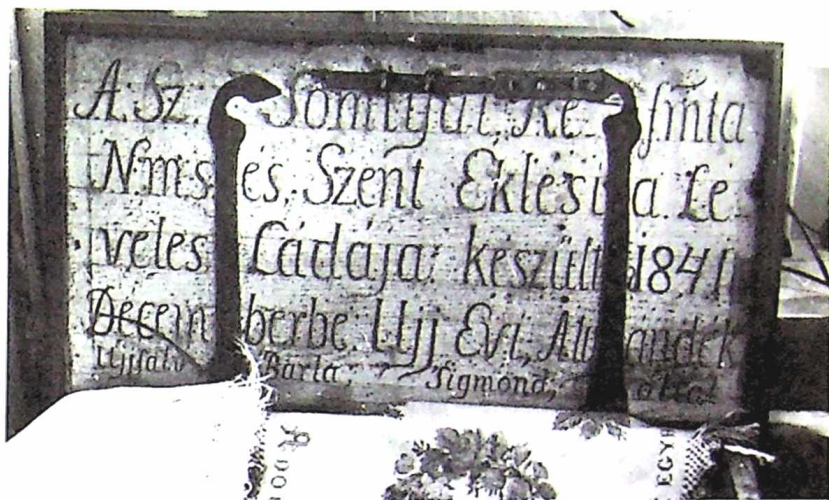 A. Sz. Somlyai. Re- fmta
N:ms és, Szent Eklésia Le
veles Ládája; készült 1841
Decem berbe Ujj Evi, Aj andék
Ujjfalv Barla; Sigmond, által
EGY